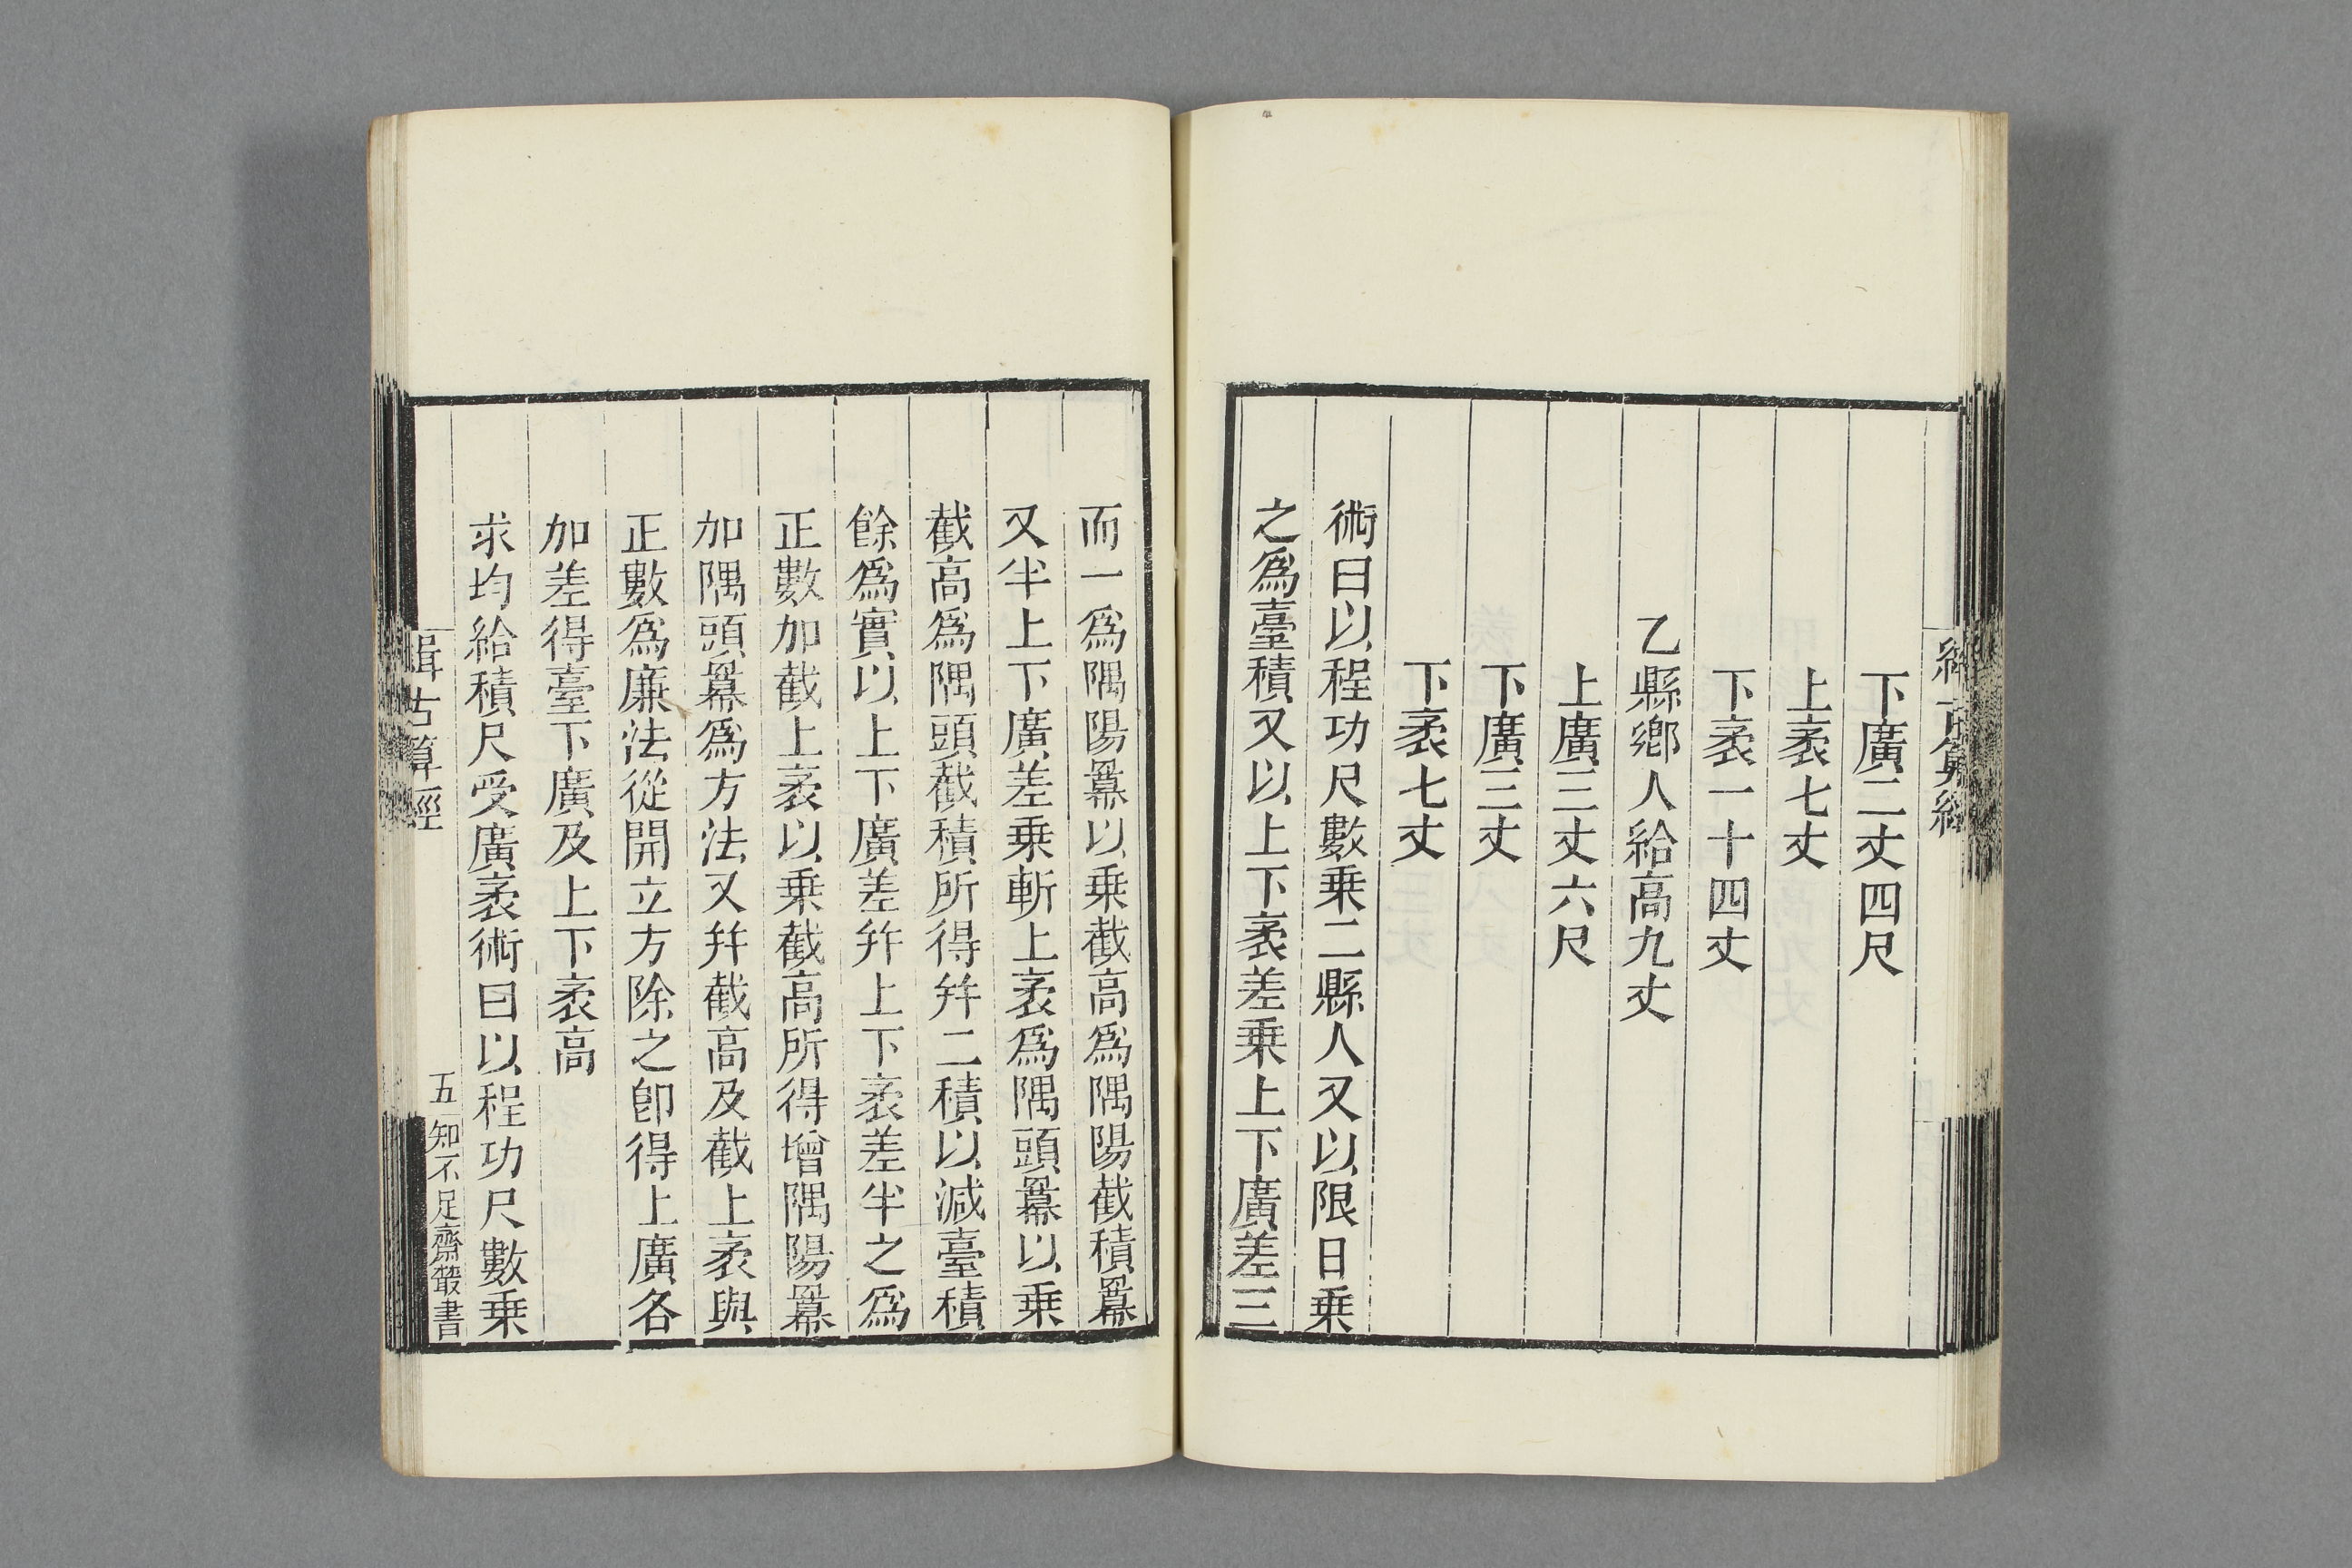 下廣二丈四尺
上袤七丈
下袤一十四丈
乙縣鄉人給高九丈
上廣三丈六尺
下廣三丈
下袤七丈
術曰以程功尺數乘二縣人又以限日乘
之爲臺積又以上下袤差乘上下廣差三
而一爲隅陽冪以乘截高爲隅陽截積冪
又半上下廣差乘斬上袤爲隅頭冪以乘
截高爲隅頭截積所得并二積以減臺積
餘爲實以上下廣差并上下袤差半之爲
正數加截上袤以乘截高所得增隅陽冪
加隅頭冪爲方法又并截高及截上袤與
正數爲廉法從開立方除之卽得上廣各
加差得臺下廣及上下袤高
求均給積尺受廣袤術曰以程功尺數乘
緝古算經
五
知不足齋叢書